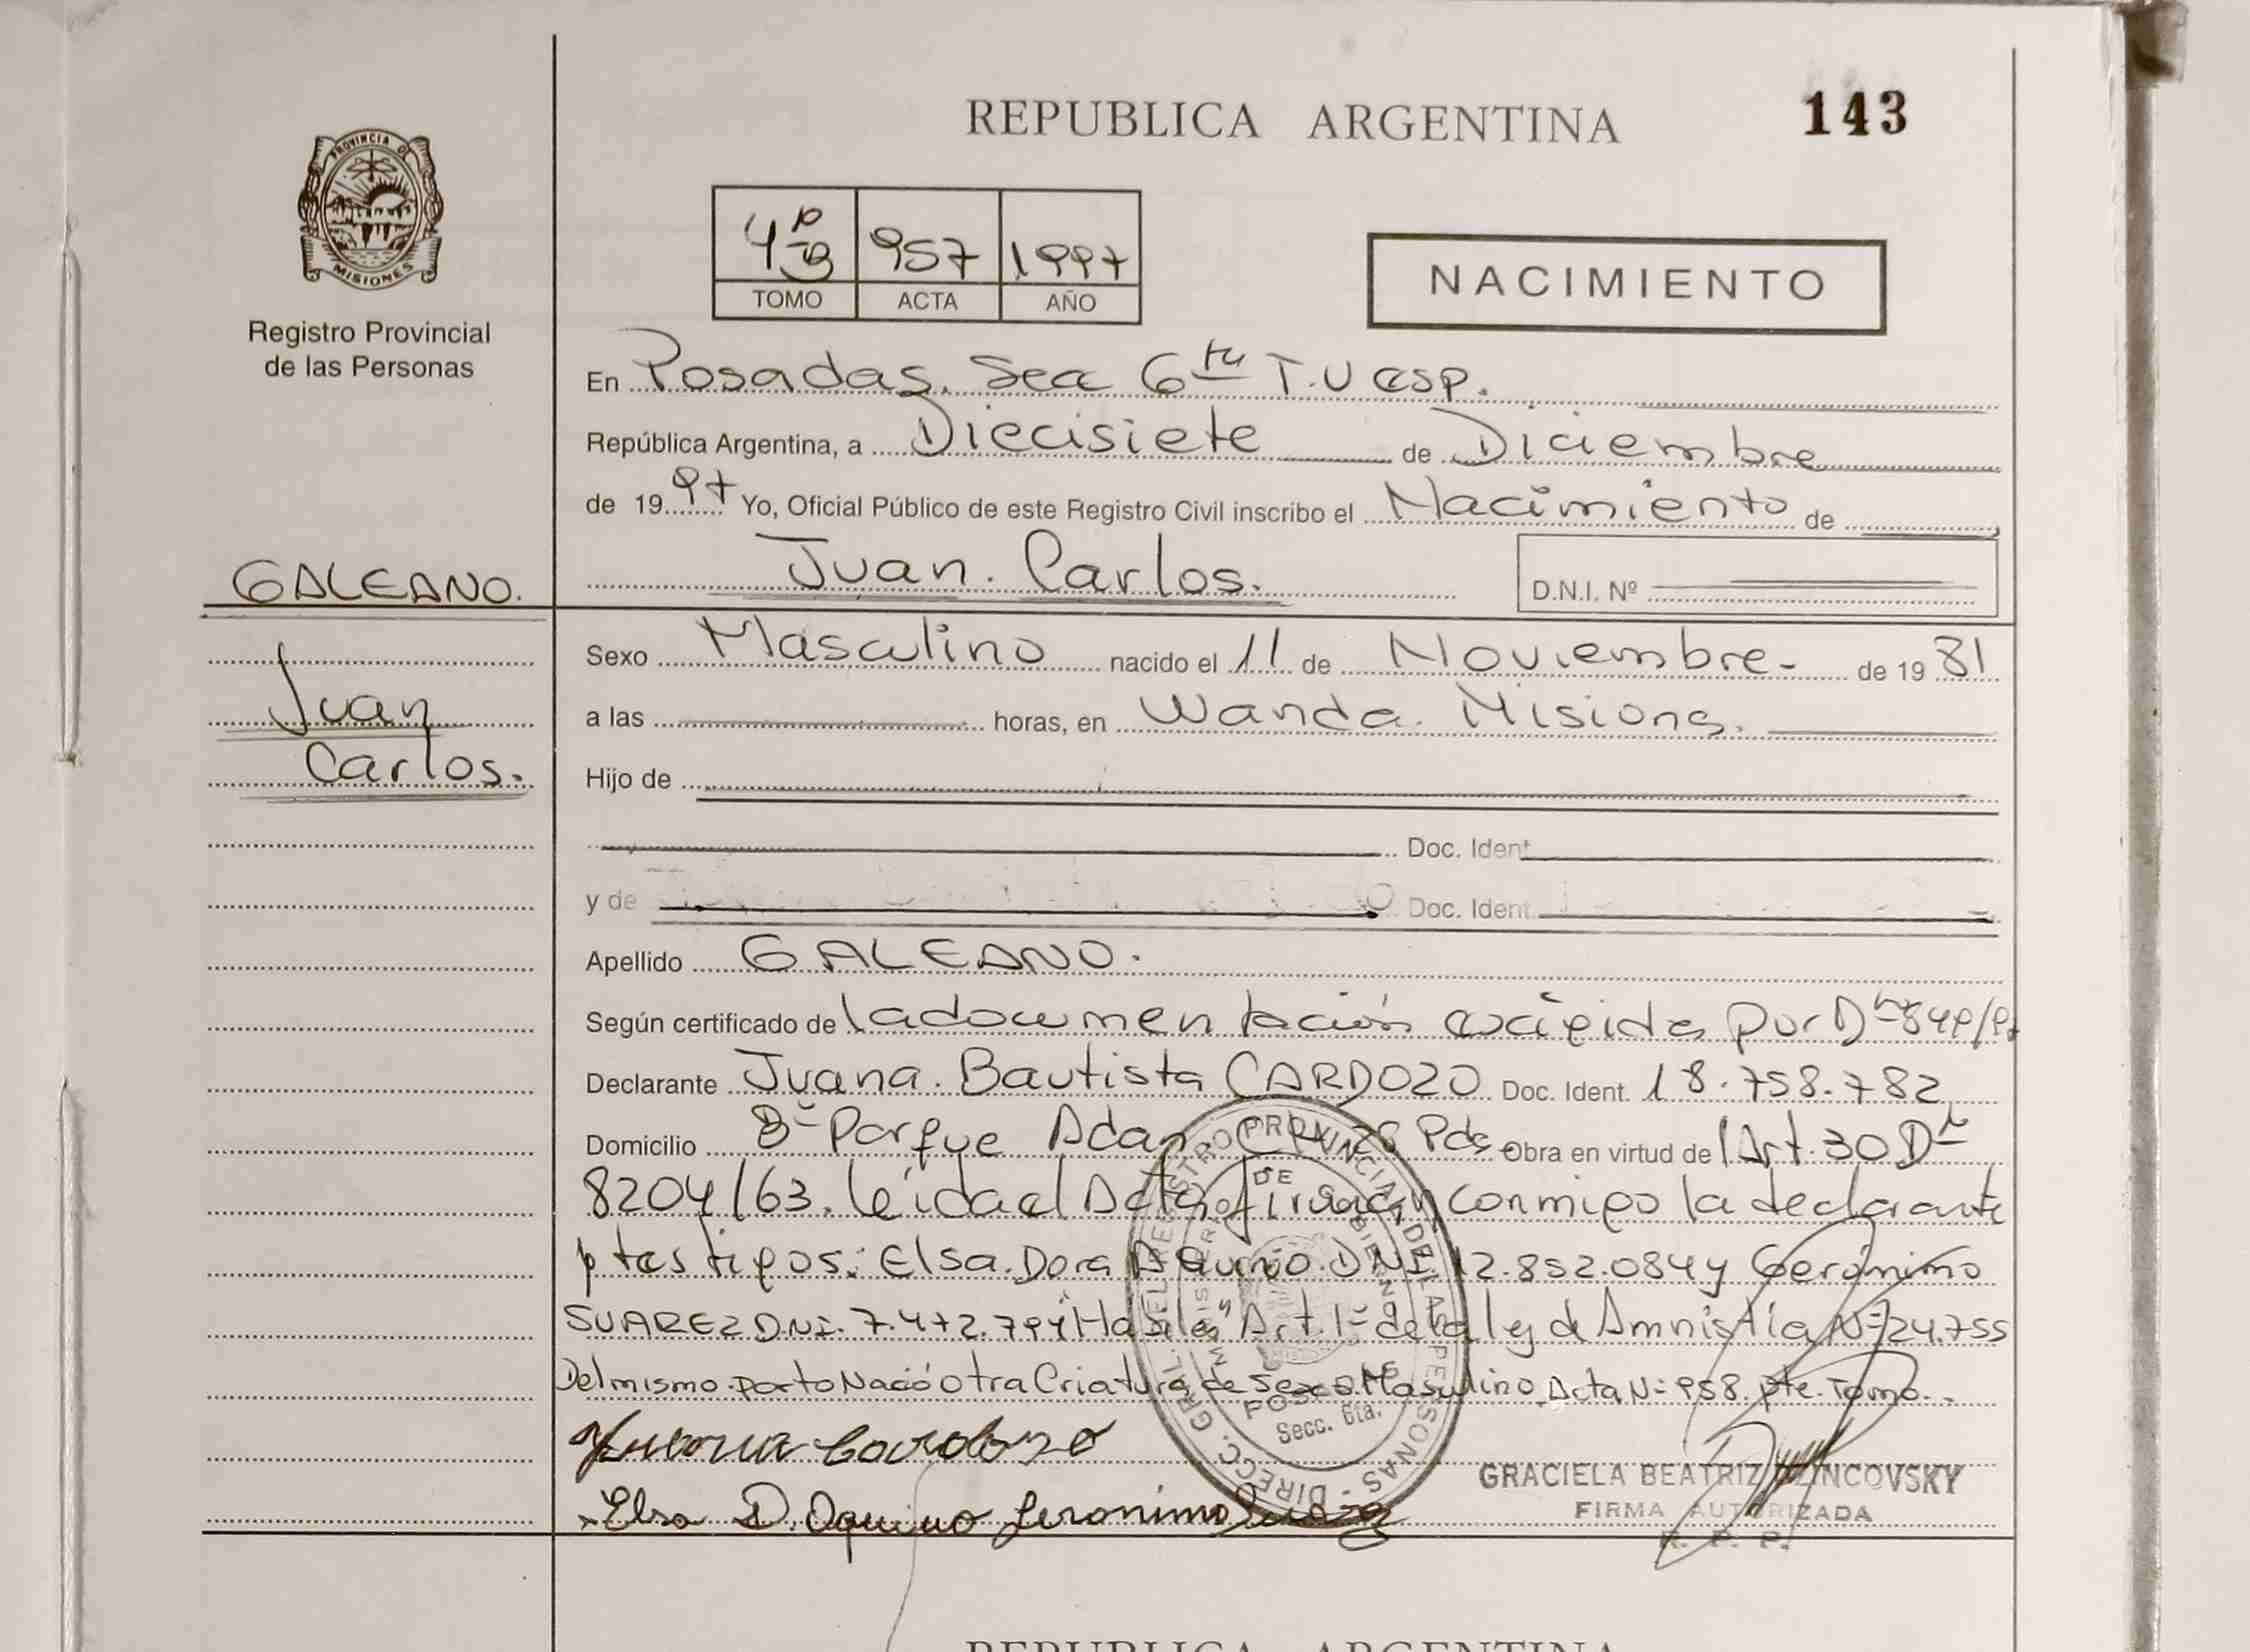 REPUBLICA ARGENTINA
143
PROVINCIA DE
MISIONES
Registro Provincial
de las Personas
957 1997
TOMO ACTA AÑO
NACIMIENTO
En Posadas. Sec 6ta T.U esp.
República Argentina, a Diecisiete de Diciembre
de 1997 Yo, Oficial Público de este Registro Civil inscribo el Nacimiento de
Juan. Carlos.
D.N.I. Nº
GALEANO.
Juan
Carlos.
Sexo Masculino nacido el 11 de Noviembre- de 19 81
a las horas, en Wanda. Misiones.
Hijo de
Doc. Ident
y de Doc. Ident.
Apellido GALEANO.
Según certificado de la documentación exigida por D
Declarante Juana. Bautista CARDOZO Doc. Ident. 18.758.782
Domicilio Bº Parque Adam Pdas Obra en virtud del Art. 30 D
8204/63. leída el Acta firman conmigo la declarante
y testigos: Elsa. Dora Aquino. DNI 12.852.084 y Gerónimo
SUAREZ DNI. 7.472.794 "Hábiles" Art. 1º de la ley de Amnistía Nº 24.755
Del mismo parto Nació otra Criatura de Sexo Masculino Acta Nº 958. pte. Tomo.
Juana Cardozo
Elsa D. Aquino Jeronimo Suarez
DIRECC. GRL. DEL REGISTRO PROVINCIAL DE LAS PERSONAS
MINISTERIO DE GOBIERNO
POSADAS
Secc. 6ta.
GRACIELA BEATRIZ
FIRMA AUTORIZADA
R. P. P.
REPUBLICA ARGENTINA